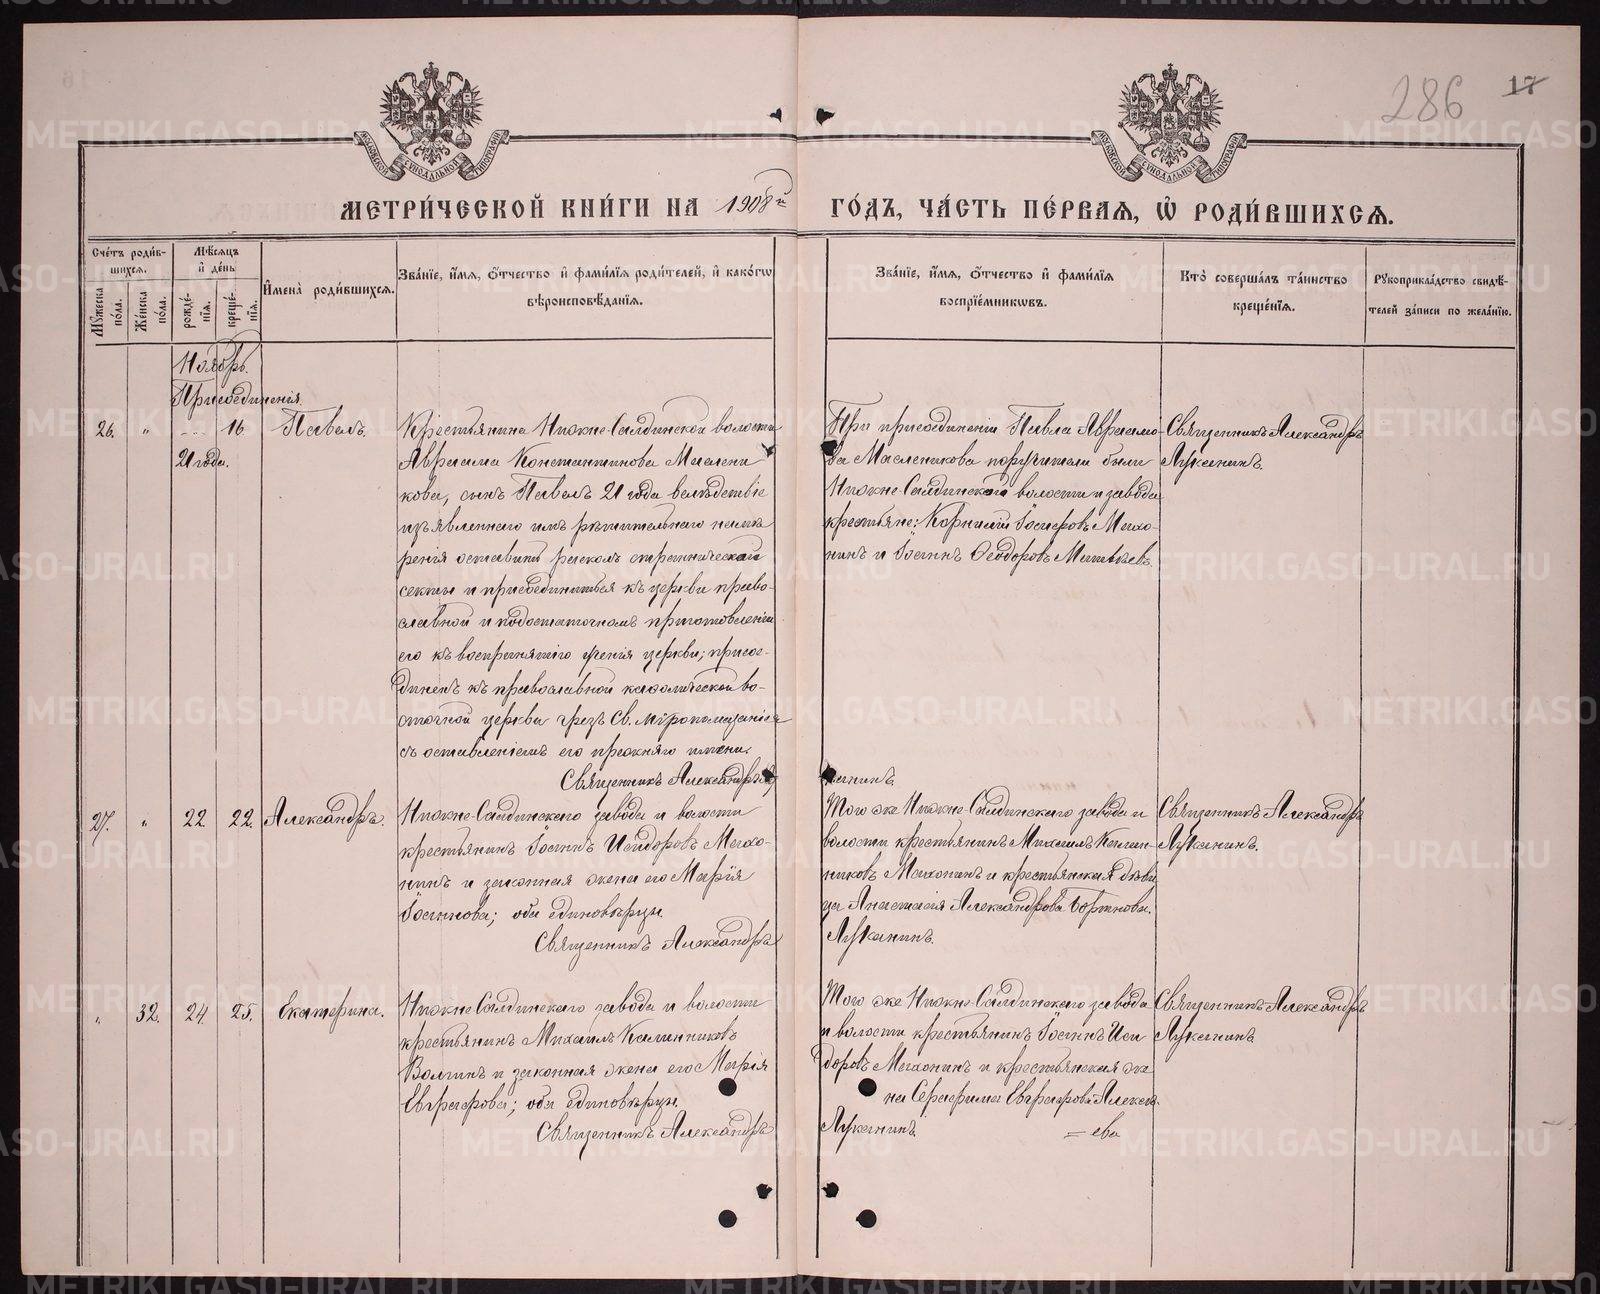 286 17
МЕТРИ́ЧЕСКОЙ КНИ́ГИ НА 1908й ГО́ДЪ, ЧА́СТЬ ПЕ́РВАѦ, Ѡ҆ РОДИ́ВШИХСѦ.
Сче́тъ роди́вшихсѧ.
Мꙋ́жеска по́ла.
Же́нска по́ла.
Мѣ́сѧцъ и҆ де́нь
рожде́нїѧ.
креще́нїѧ.
И҆мена̀ роди́вшихсѧ.
Зва́нїе, и҆́мѧ, ѻ҆́тчество и҆ фами́лїѧ роди́телей, и҆ како́гѡ вѣроисповѣ́данїѧ.
Зва́нїе, и҆́мѧ, ѻ҆́тчество и҆ фами́лїѧ воспрїе́мникѡвъ.
Кто̀ соверша́лъ та́инство креще́нїѧ.
Рꙋкоприкла́дство свидѣ́телей за́писи по жела́нїю.
Ноябрь.
Присоединенія
26. „ ... 16. Павелъ.
21 года.
Крестьянина Нижне-Салдинской волости
Авраама Константинова Маслени
кова, сынъ Павелъ 21 года вслѣдствіе
изъявленнаго имъ рѣшительнаго намѣ
ренія оставить расколъ страннической
секты и присоединиться къ церкви право-
славной и по достаточномъ приготовленіи
его къ воспріятію ученія церкви; присое-
диненъ къ православной каѳолической во-
сточной церкви чрезъ Св. мѵропомазаніе
съ оставленіемъ его прежняго имени.
Священникъ Александръ Лу
канинъ.
При присоединеніи Павла Авраамо-
ва Масленикова поручители были
Нижне-Салдинскаго волости и завода
крестьяне: Корнилій Іосифовъ Махо-
нинъ и Іоаннъ Ѳеодоровъ Матвѣевъ.
Священникъ Александръ
Луканинъ.
27. „ 22. 22. Александръ.
Нижне-Салдинскаго завода и волости
крестьянинъ Іоаннъ Исидоровъ Махо-
нинъ и законная жена его Марія
Іоаннова; оба единовѣрцы.
Священникъ Александръ
Того же Нижне-Салдинскаго завода и
волости крестьянинъ Михаилъ Калин-
никовъ Махонинъ и крестьянская дѣви
ца Анастасія Александрова Бортнова.
Луканинъ.
Священникъ Александръ
Луканинъ.
„ 32. 24. 25. Екатерина.
Нижне-Салдинскаго завода и волости
крестьянинъ Михаилъ Калинниковъ
Волгинъ и законная жена его Марія
Евграфова; оба единовѣрцы.
Священникъ Александръ
Того же Нижне-Салдинскаго завода
и волости крестьянинъ Іоаннъ Иси
доровъ Махонинъ и крестьянская же
на Серафима Евграфова Алексѣ-
= ева
Луканинъ.
Священникъ Александръ
Луканинъ
METRIKI.GASO-URAL.RU